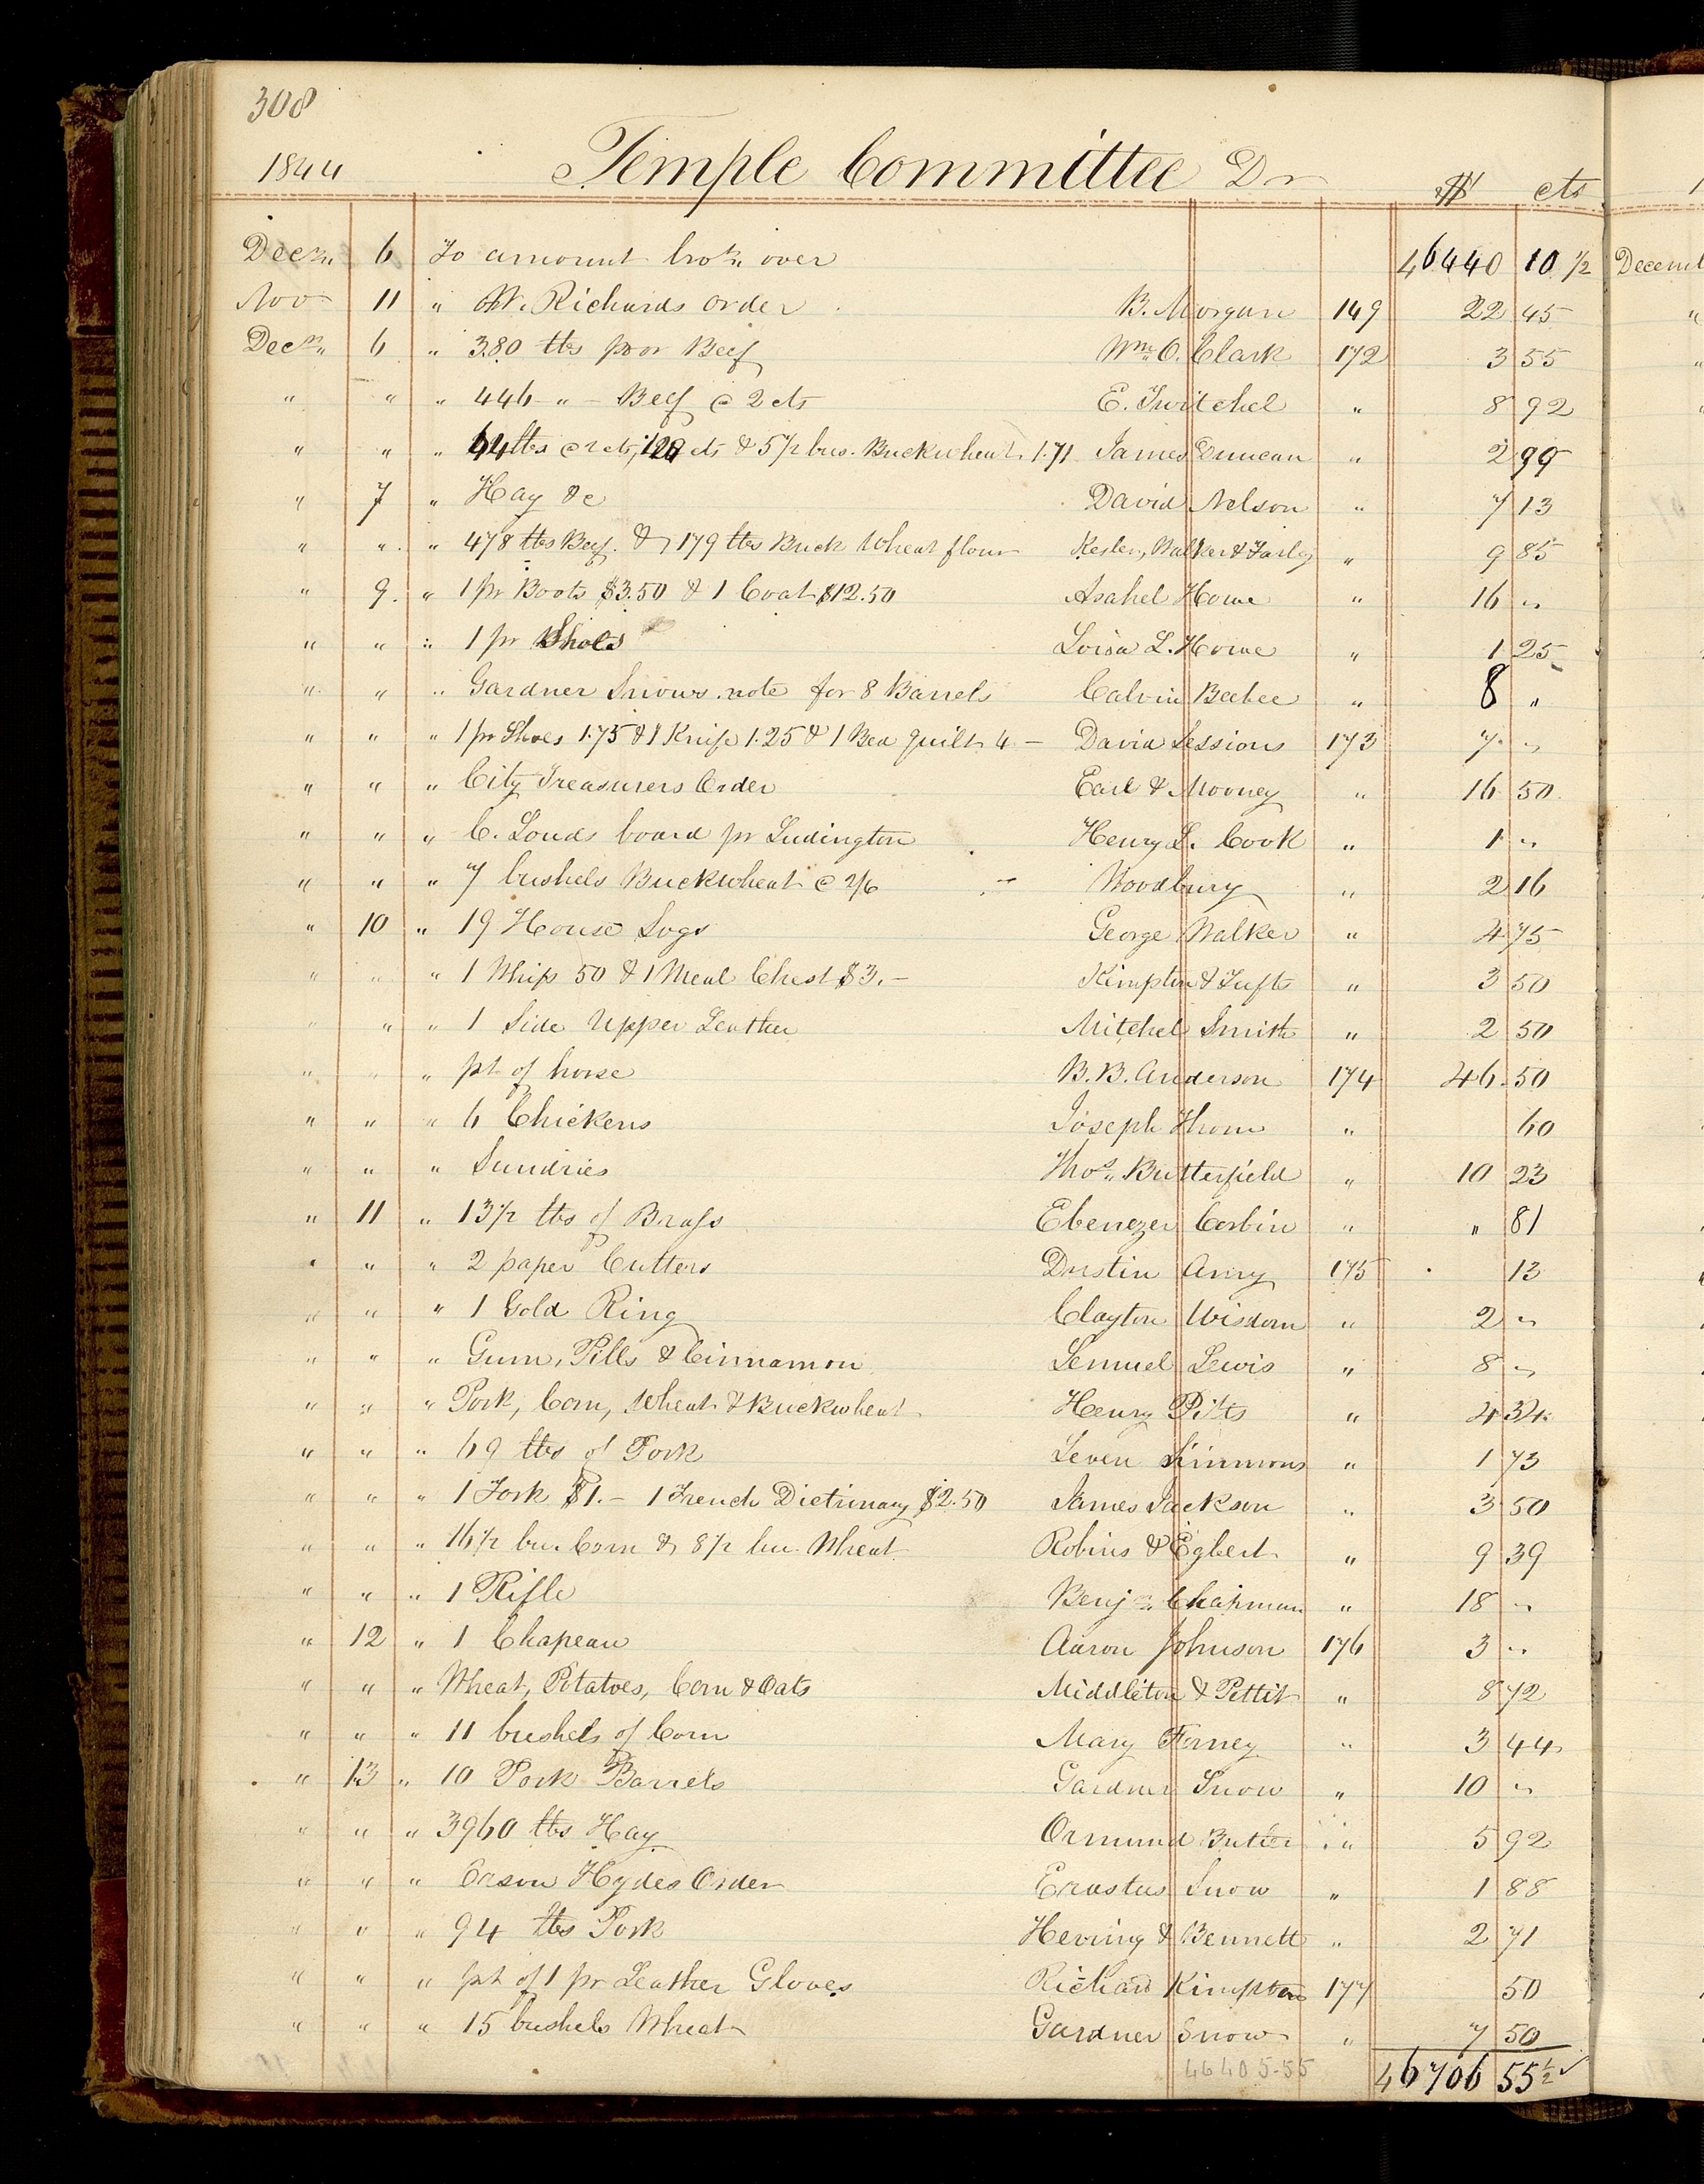 308
1844 Temple Committee Dr $ cts
Decr. 6 To amount brot. over 46440 10 1/2
Nov 11 " W. Richards order B. Morgan 149 22 45
Decr. 6 " 380 lbs poor Beef Wm. O. Clark 172 3 55
" " " 446 " - Beef @ 2 cts E. Twitchel " 8 92
" " " 64 lbs @ 2 cts, 128 cts & 5 1/2 bus. Buckwheat 1.71 James Duncan " 2 99
" 7 " Hay &c David Nelson " 7 13
" " " 478 lbs Beef. & 179 lbs Buck Wheat flour Kesler, Walker & Farley " 9 85
" 9. " 1 pr Boots $3.50 & 1 Coat $12.50 Asahel Howe " 16 "
" " " 1 pr Shoes Loisa L. Howe " 1 25
" " " Gardner Snows note for 8 Barrels Calvin Beebee " 8 "
" " " 1 pr Shoes 1.75 & 1 Knife 1.25 & 1 Bed quilt 4 - David Sessions 173 7 "
" " " City Treasurers Order Earl & Mooney " 16 50
" " " C. Louds board pr Ludington Henry L. Cook " 1 "
" " " 7 bushels Buckwheat @ 2/6 - Woodbury " 2 16
" 10 " 19 House Logs George Walker " 4 75
" " " 1 Whip 50 & 1 Meal Chest $3. - Kimpton & Tufts " 3 50
" " " 1 Side Upper Leather Mitchel Smith " 2 50
" " " pt of horse B. B. Anderson 174 46 50
" " " 6 Chickens Joseph Thorn " 60
" " " Sundries Thos. Butterfield " 10 23
" 11 " 13 1/2 lbs of Brass Ebenezer Corbin " " 81
" " " 2 paper Cutters Dustin Amy 175 13
" " " 1 Gold Ring Clayton Wisdom " 2 "
" " " Gum, Pills & Cinnamon Lemuel Lewis " 8 "
" " " Pork, Corn, Wheat & Buckwheat Henry Pitts " 4 34
" " " 69 lbs of Pork Leven Simmons " 1 73
" " " 1 Fork $1. - 1 French Dictionary $2.50 James Jackson " 3 50
" " " 16 1/2 bu. Corn & 8 1/2 bu. Wheat Robins & Egbert " 9 39
" " " 1 Rifle Benjn. Chapman " 18 "
" 12 " 1 Chapeau Aaron Johnson 176 3 "
" " " Wheat, Potatoes, Corn & Oats Middleton & Pettit " 8 72
" " " 11 bushels of Corn Mary Forney " 3 44
" 13 " 10 Pork Barrels Gardner Snow " 10 "
" " " 3960 lbs Hay Ormund Butler " 5 92
" " " Orson Hydes Order Erastus Snow " 1 88
" " " 94 lbs Pork Hering & Bennett " 2 71
" " " pt of 1 pr Leather Gloves Richard Kimpton 177 50
" " " 15 bushels Wheat Gardner Snow " 7 50
46405.55 46706 55 1/2 ✓